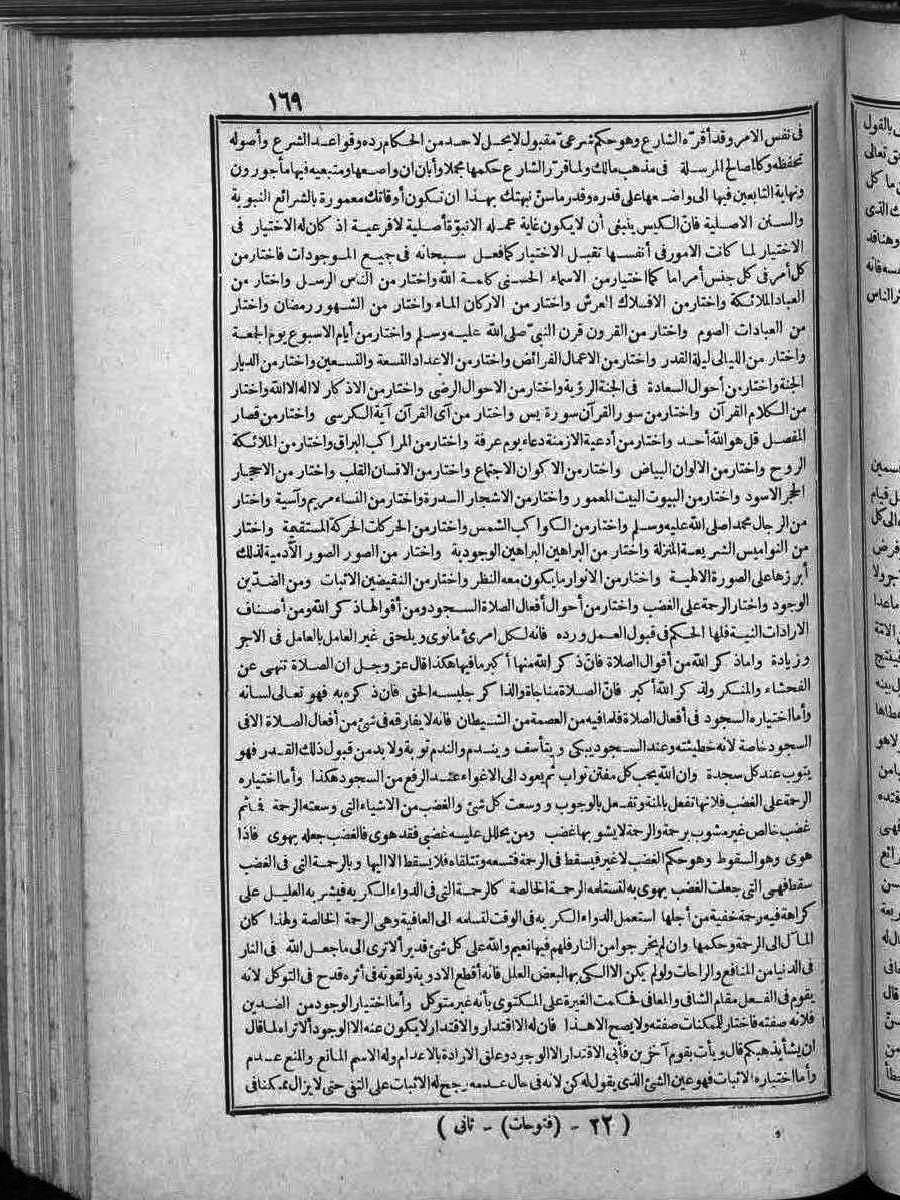 ١٦٩
فى نفس الامر وقد أقرّه الشارع وهو حكم شرعىّ مقبول لا يحل لاحد من الحكام رده وقواعد الشرع وأصوله
تحفظه وكالمصالح المرسلة فى مذهب مالك ولما قرّر الشارع حكمها مجملا وأبان ان واضعها ومتبعيه فيها مأجورون
ونهاية التابعين فيها الى واضعها على قدره وقدر ماسنّ نبهتك بهذا ان تكون أوقاتك معمورة بالشرائع النبوية
والسنن الاصلية فانّ الكيس ينبغى أن لا يكون غاية عمله الا نبوّة أصلية لا فرعية اذ كان له الاختيار فى
الاختيار لما كانت الامور فى أنفسها تقبل الاختيار كما فعل سبحانه فى جميع الموجودات فاختار من
كل أمر فى كل جنس أمرا ما كما اختار من الاسماء الحسنى كلمة الله واختار من الناس الرسل واختار من
العباد الملائكة واختار من الافلاك العرش واختار من الاركان الماء واختار من الشهور رمضان واختار
من العبادات الصوم واختار من القرون قرن النبىّ صلى الله عليه وسلم واختار من أيام الاسبوع يوم الجمعة
واختار من الليالى ليلة القدر واختار من الاعمال الفرائض واختار من الاعداد التسعة والتسعين واختار من الديار
الجنة واختار من أحوال السعادة فى الجنة الرؤية واختار من الاحوال الرضى واختار من الاذكار لا اله الا الله واختار
من الكلام القرآن واختار من سور القرآن سورة يس واختار من آى القرآن آية الكرسى واختار من قصار
المفصل قل هو الله أحد واختار من أدعية الازمنة دعاء يوم عرفة واختار من المراكب البراق واختار من الملائكة
الروح واختار من الالوان البياض واختار من الاكوان الاجتماع واختار من الانسان القلب واختار من الاحجار
الحجر الاسود واختار من البيوت البيت المعمور واختار من الاشجار السدرة واختار من النساء مريم وآسية واختار
من الرجال محمدا صلى الله عليه وسلم واختار من الكواكب الشمس واختار من الحركات الحركة المستقيمة واختار
من النواميس الشريعة المنزلة واختار من البراهين البراهين الوجودية واختار من الصور الصور الآدمية لذلك
أبرزها على الصورة الالهية واختار من الانوار ما يكون معه النظر واختار من النقيضين الاثبات ومن الضدّين
الوجود واختار الرحمة على الغضب واختار من أحوال أفعال الصلاة السجود ومن أقوالها ذكر الله ومن أصناف
الارادات النية فلها الحكم فى قبول العمل ورده فانه لكل امرئ مانوى ويلحق غير العامل بالعامل فى الاجر
وزيادة واما ذكر الله من أقوال الصلاة فانّ ذكر الله منها أكبر ما فيها هكذا قال عز وجل ان الصلاة تنهى عن
الفحشاء والمنكر ولذكر الله أكبر فانّ الصلاة مناجاة والذاكر جليسه الحق فان ذكره به فهو تعالى لسانه
وأما اختياره السجود فى أفعال الصلاة فلما فيه من العصمة من الشيطان فانه لا يفارقه فى شئ من أفعال الصلاة الا فى
السجود خاصة لانه خطيئته وعند السجود يبكى ويتأسف ويندم والندم توبة ولا بد من قبول ذلك القدر فهو
يتوب عند كل سجدة وان الله يحب كل مفتن تواب ثم يعود الى الاغواء عند الرفع من السجود هكذا وأما اختياره
الرحمة على الغضب فلانها تفعل بالمنة وتفعل بالوجوب ووسعت كل شئ والغضب من الاشياء التى وسعته الرحمة فما ثم
غضب خالص غير مشوب برحمة والرحمة لا يشوبها غضب ومن يحلل عليه غضبى فقد هوى فالغضب جعله يهوى فاذا
هوى وهو السقوط وهو حكم الغضب لا غير فيسقط فى الرحمة فتسعه وتتلقاه فلا يسقط الا اليها وبالرحمة التى فى الغضب
سقط فهى التى جعلت الغضب يهوى به لتستلمه الرحمة الخالصة كالرحمة التى فى الدواء الكريه فيشربه العليل على
كراهة فيه رحمة خفية من أجلها استعمل الدواء الكريه فى الوقت لتسلمه الى العافية وهى الرحمة الخالصة ولهذا كان
المآل الى الرحمة وحكمها وان لم يخرجوا من النار فلهم فيها نعيم والله على كل شئ قدير ألا ترى الى ما جعل الله فى النار
فى الدنيا من المنافع والراحات ولو لم يكن الا الكى بها لبعض العلل فانه أقطع الادوية ولقوّته فى أثره قدح فى التوكل لانه
يقوم فى الفعل مقام الشافى والمعافى فحكمت الغيرة على المكتوى بأنه غير متوكل وأما اختياره الوجود من الضدين
فلانه صفته فاختار للممكنات صفته ولا يصح الا هذا فان له الا اقتدار والاقتدار لا يكون عنه الا الوجود ألا تراه لما قال
ان يشأ يذهبكم قال ويأت بقوم آخرين فأبى الاقتدار الا الوجود وعلق الارادة بالاعدام وله الاسم المانع والمنع عدم
وأما اختياره الاثبات فهو عين الشئ الذى يقول له كن لانه فى حال عدمه رجح له الاثبات على النفى حتى لا يزال ممكنا فى
( ٢٢ - (فتوحات) - ثانى )